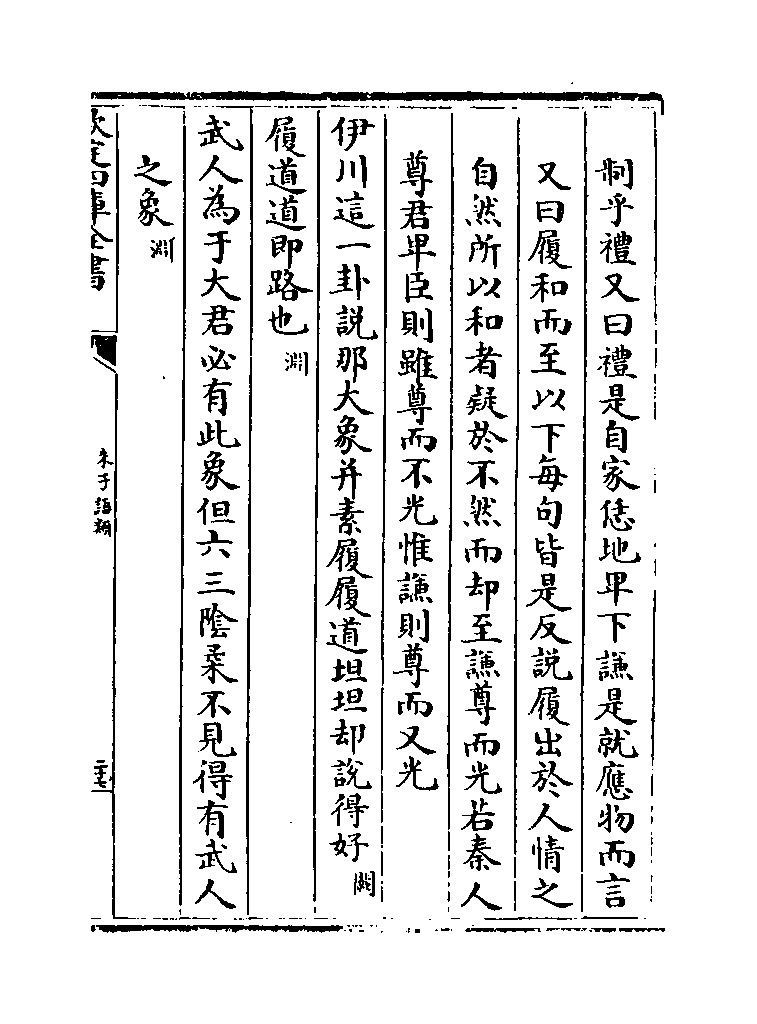 制乎禮又曰禮是自家恁地卑下謙是就應物而言
又曰履和而至以下每句皆是反説履出於人情之
自然所以和者疑於不然而却至謙尊而光若秦人
尊君卑臣則雖尊而不光惟謙則尊而又光
伊川這一卦説那大象并素履履道坦坦却說得好 㵎
履道道即路也 淵
武人為于大君必有此象但六三陰柔不見得有武人
之象 淵
欽定四庫全書
朱子語類